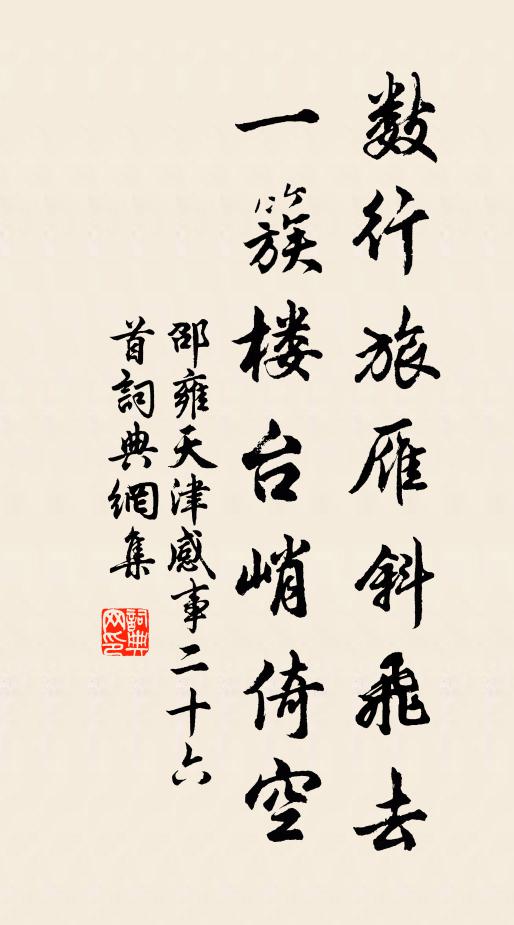 数行旅雁斜飛去
一簇楼台峭倚空
邵雍天津感事二十六
首詞典網集
詞典
网印